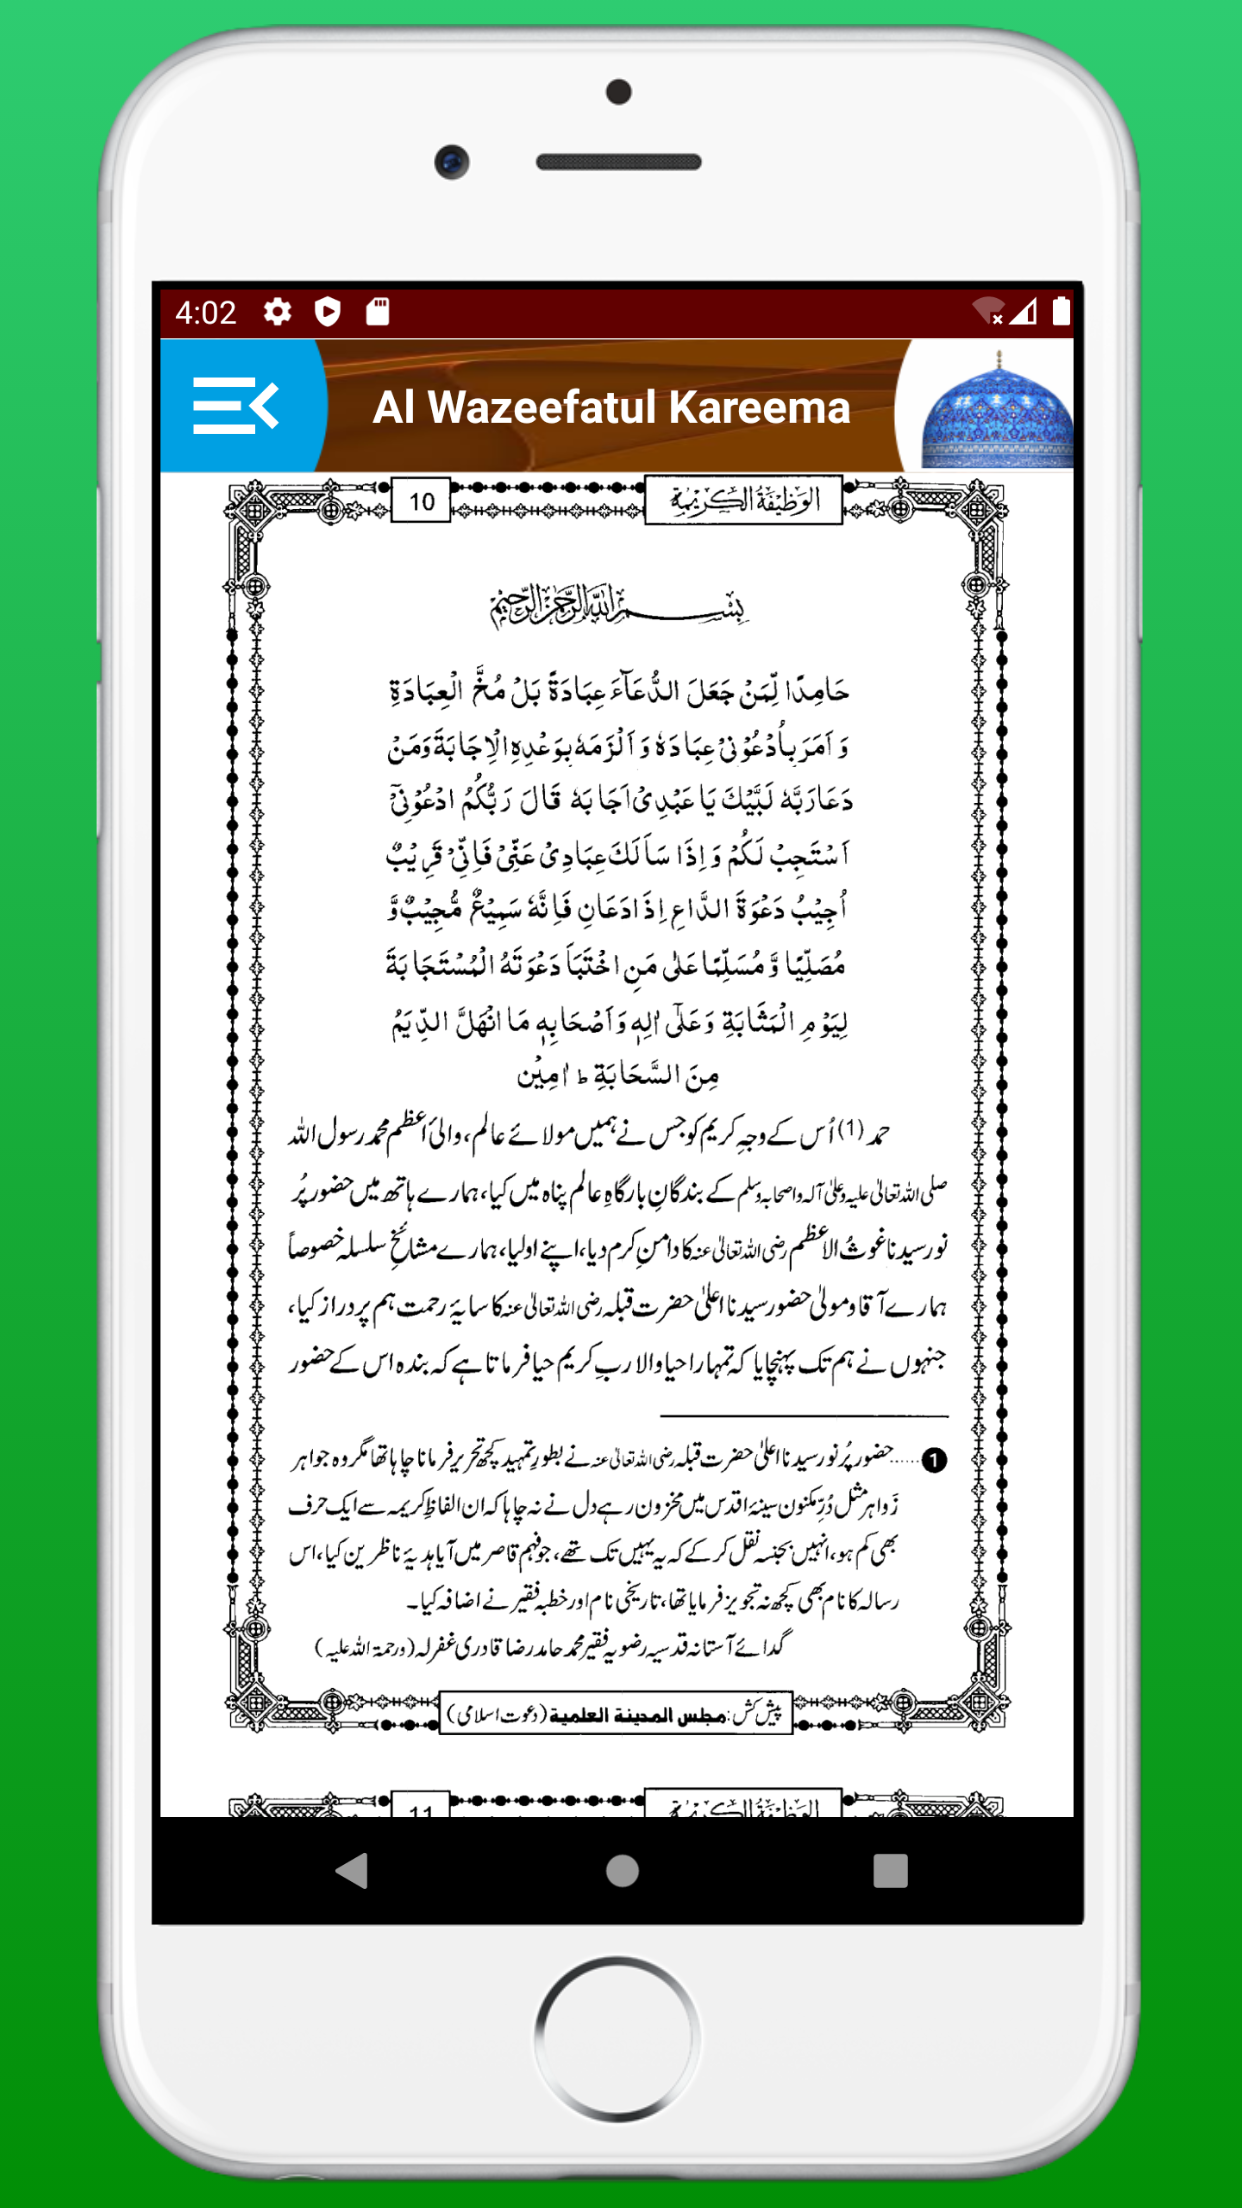 4:02
Al Wazeefatul Kareema
الوَظِیْفَةُ الْکَرِیْمَة
10
بِسْمِ اللّٰهِ الرَّحْمٰنِ الرَّحِيْمِ
حَامِدًا لِّمَنْ جَعَلَ الدُّعَآءَ عِبَادَةً بَلْ مُخَّ الْعِبَادَةِ
وَ اَمَرَ بِاُدْعُوْنِیْ عِبَادَهٗ وَ اَلْزَمَهٗ بِوَعْدِهِ الْاِجَابَةَ وَمَنْ
دَعَا رَبَّهٗ لَبَّيْكَ يَا عَبْدِیْ اَجَابَهٗ قَالَ رَبُّكُمُ ادْعُوْنِیْۤ
اَسْتَجِبْ لَكُمْ وَ اِذَا سَاَلَكَ عِبَادِیْ عَنِّیْ فَاِنِّیْ قَرِيْبٌ
اُجِيْبُ دَعْوَةَ الدَّاعِ اِذَا دَعَانِ فَاِنَّهٗ سَمِيْعٌ مُّجِيْبٌ وَّ
مُصَلِّيًا وَّ مُسَلِّمًا عَلٰی مَنِ اخْتَبَاَ دَعْوَتَهُ الْمُسْتَجَابَةَ
لِيَوْمِ الْمَثَابَةِ وَعَلٰۤی اٰلِهٖ وَ اَصْحَابِهٖ مَا انْهَلَّ الدِّيَمُ
مِنَ السَّحَابَةِ ط اٰمِيْن
حمد (1) اُس کے وجہِ کریم کو جس نے ہمیں مولائے عالم، والیٔ اعظم محمد رسول اللہ
صلی اللہ تعالیٰ علیہ وعلیٰ آلہ واصحابہ وسلم کے بندگانِ بارگاہِ عالم پناہ میں کیا، ہمارے ہاتھ میں حضور پُر
نور سیدنا غوثُ الاعظم رضی اللہ تعالیٰ عنہ کا دامنِ کرم دیا، اپنے اولیا، ہمارے مشائخِ سلسلہ خصوصاً
ہمارے آقا ومولیٰ حضور سیدنا اعلیٰ حضرت قبلہ رضی اللہ تعالیٰ عنہ کا سایۂ رحمت ہم پر دراز کیا،
جنہوں نے ہم تک پہنچایا کہ تمہارا حیا والا ربِ کریم حیا فرماتا ہے کہ بندہ اس کے حضور
1......حضور پُر نور سیدنا اعلیٰ حضرت قبلہ رضی اللہ تعالیٰ عنہ نے بطورِ تمہید کچھ تحریر فرمانا چاہا تھا مگر وہ جواہر
زَواہر مثل دُرِّ مکنون سینۂ اقدس میں مخزون رہے دل نے نہ چاہا کہ ان الفاظِ کریمہ سے ایک حرف
بھی کم ہو، انہیں بجنسہٖ نقل کر کے کہ یہ یہیں تک تھے، جو فہم قاصر میں آیا ہدیۂ ناظرین کیا، اس
رسالہ کا نام بھی کچھ نہ تجویز فرمایا تھا، تاریخی نام اور خطبہ فقیر نے اضافہ کیا۔
گدائے آستانہ قدسیہ رضویہ فقیر محمد حامد رضا قادری غفرلہ (ورحمۃ اللہ علیہ)
پیش کش: مجلس المدینۃ العلمیۃ (دعوت اسلامی)
الوَظِیْفَةُ الْکَرِیْمَة
11